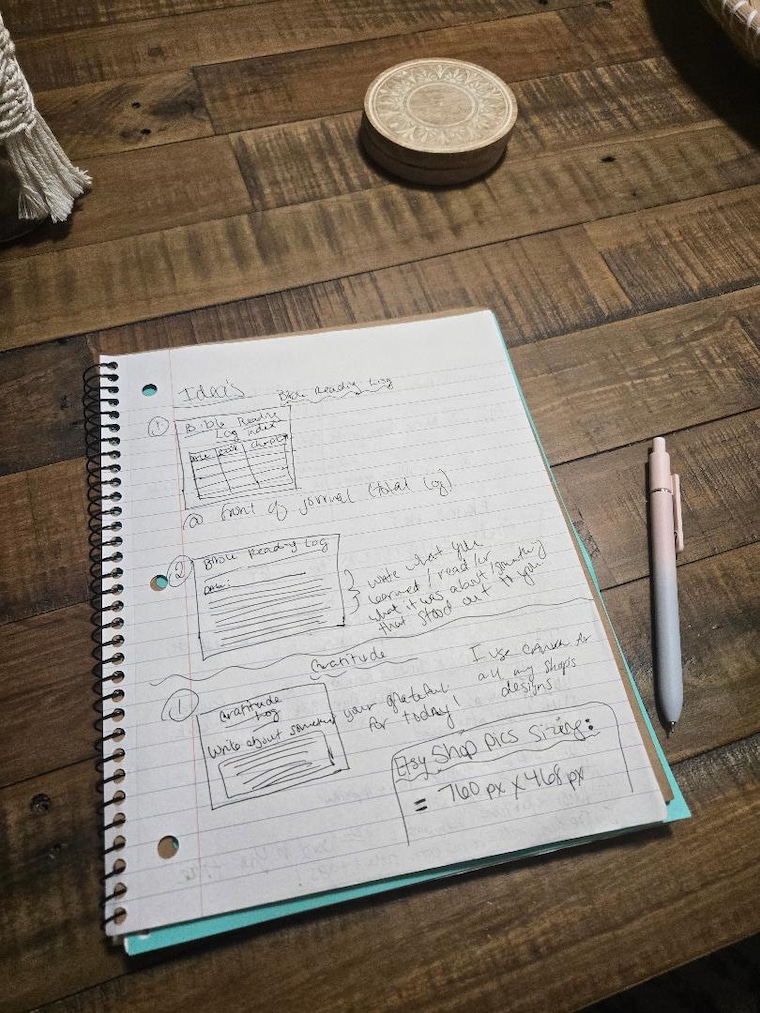 Idea's
Bible Reading Log
①
Bible Reading
Log index
Date Book Chapter
@ front of journal (total log)
②
Bible Reading Log
Date:
write what you
learned/read/or
what it was about/something
that stood out to you
Gratitude
①
Gratitude
Log
Write about something
your grateful
for today!
I use canva for
all my shops
designs
Etsy Shop Pics Sizing:
= 760 px x 468 px